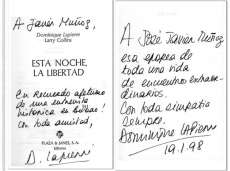 A Javier Muñoz,
Dominique Lapierre
Larry Collins
ESTA NOCHE,
LA LIBERTAD
En recuerdo afectuoso
de una entrevista
historica en Bilbao!
Con toda amistad,
PLAZA & JANES, S.A.
Editores
D. Lapierre
A José Javier Muñoz
esa epopea de
toda una vida
de encuentros extraor-
dinarios.
Con toda simpatia
siempre.
Dominique Lapierre
19.1.98